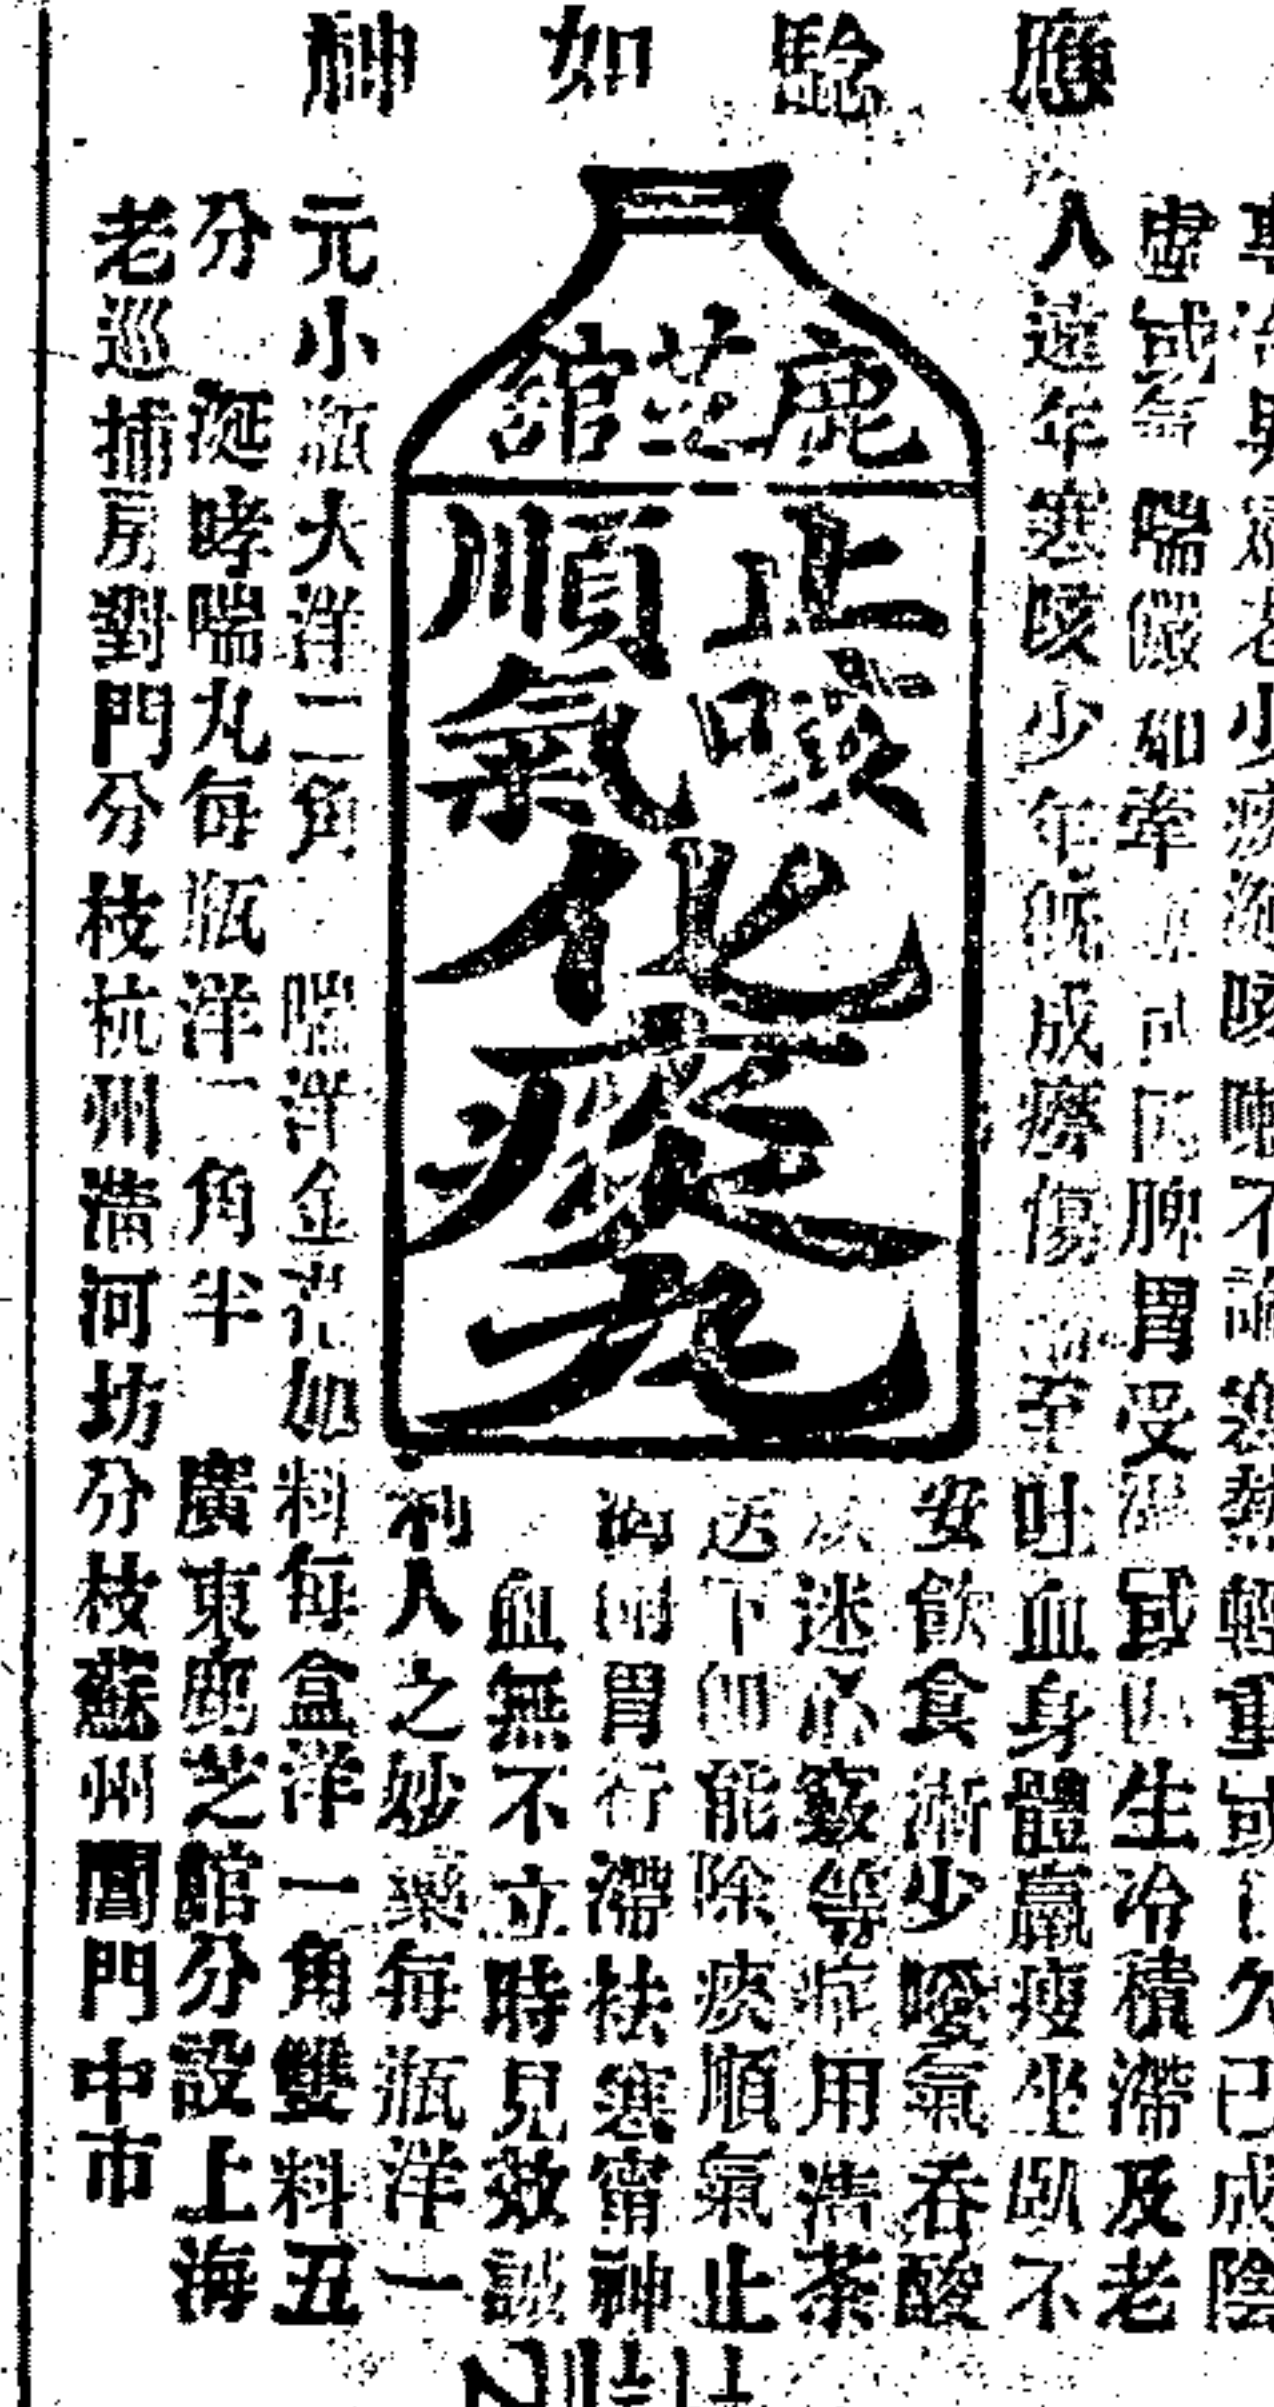 應驗如神
鹿芝館
止咳
順氣
化痰丸
專治男婦老小痰 咳喘不論寒熱輕重或日久已成陰
虛或氣喘儼如牽 脾胃受濕或 生冷積滯及老
人遠年寒咳少年 成癆傷 至吐血身體羸瘦坐臥不
安飲食漸少噯氣吞酸
迷心竅等症用清茶
送下即能除痰順氣止
開胃行滯祛寒甯神
血無不立時見效誠
利人之妙藥每瓶洋一
元小瓶大洋二角 喘洋金 加料每盒洋一角雙料五
分 涎哮喘丸每瓶洋一角半 廣東鹿芝館分設上海
老巡捕房對門分枝杭州清河坊分枝蘇州閶門中市